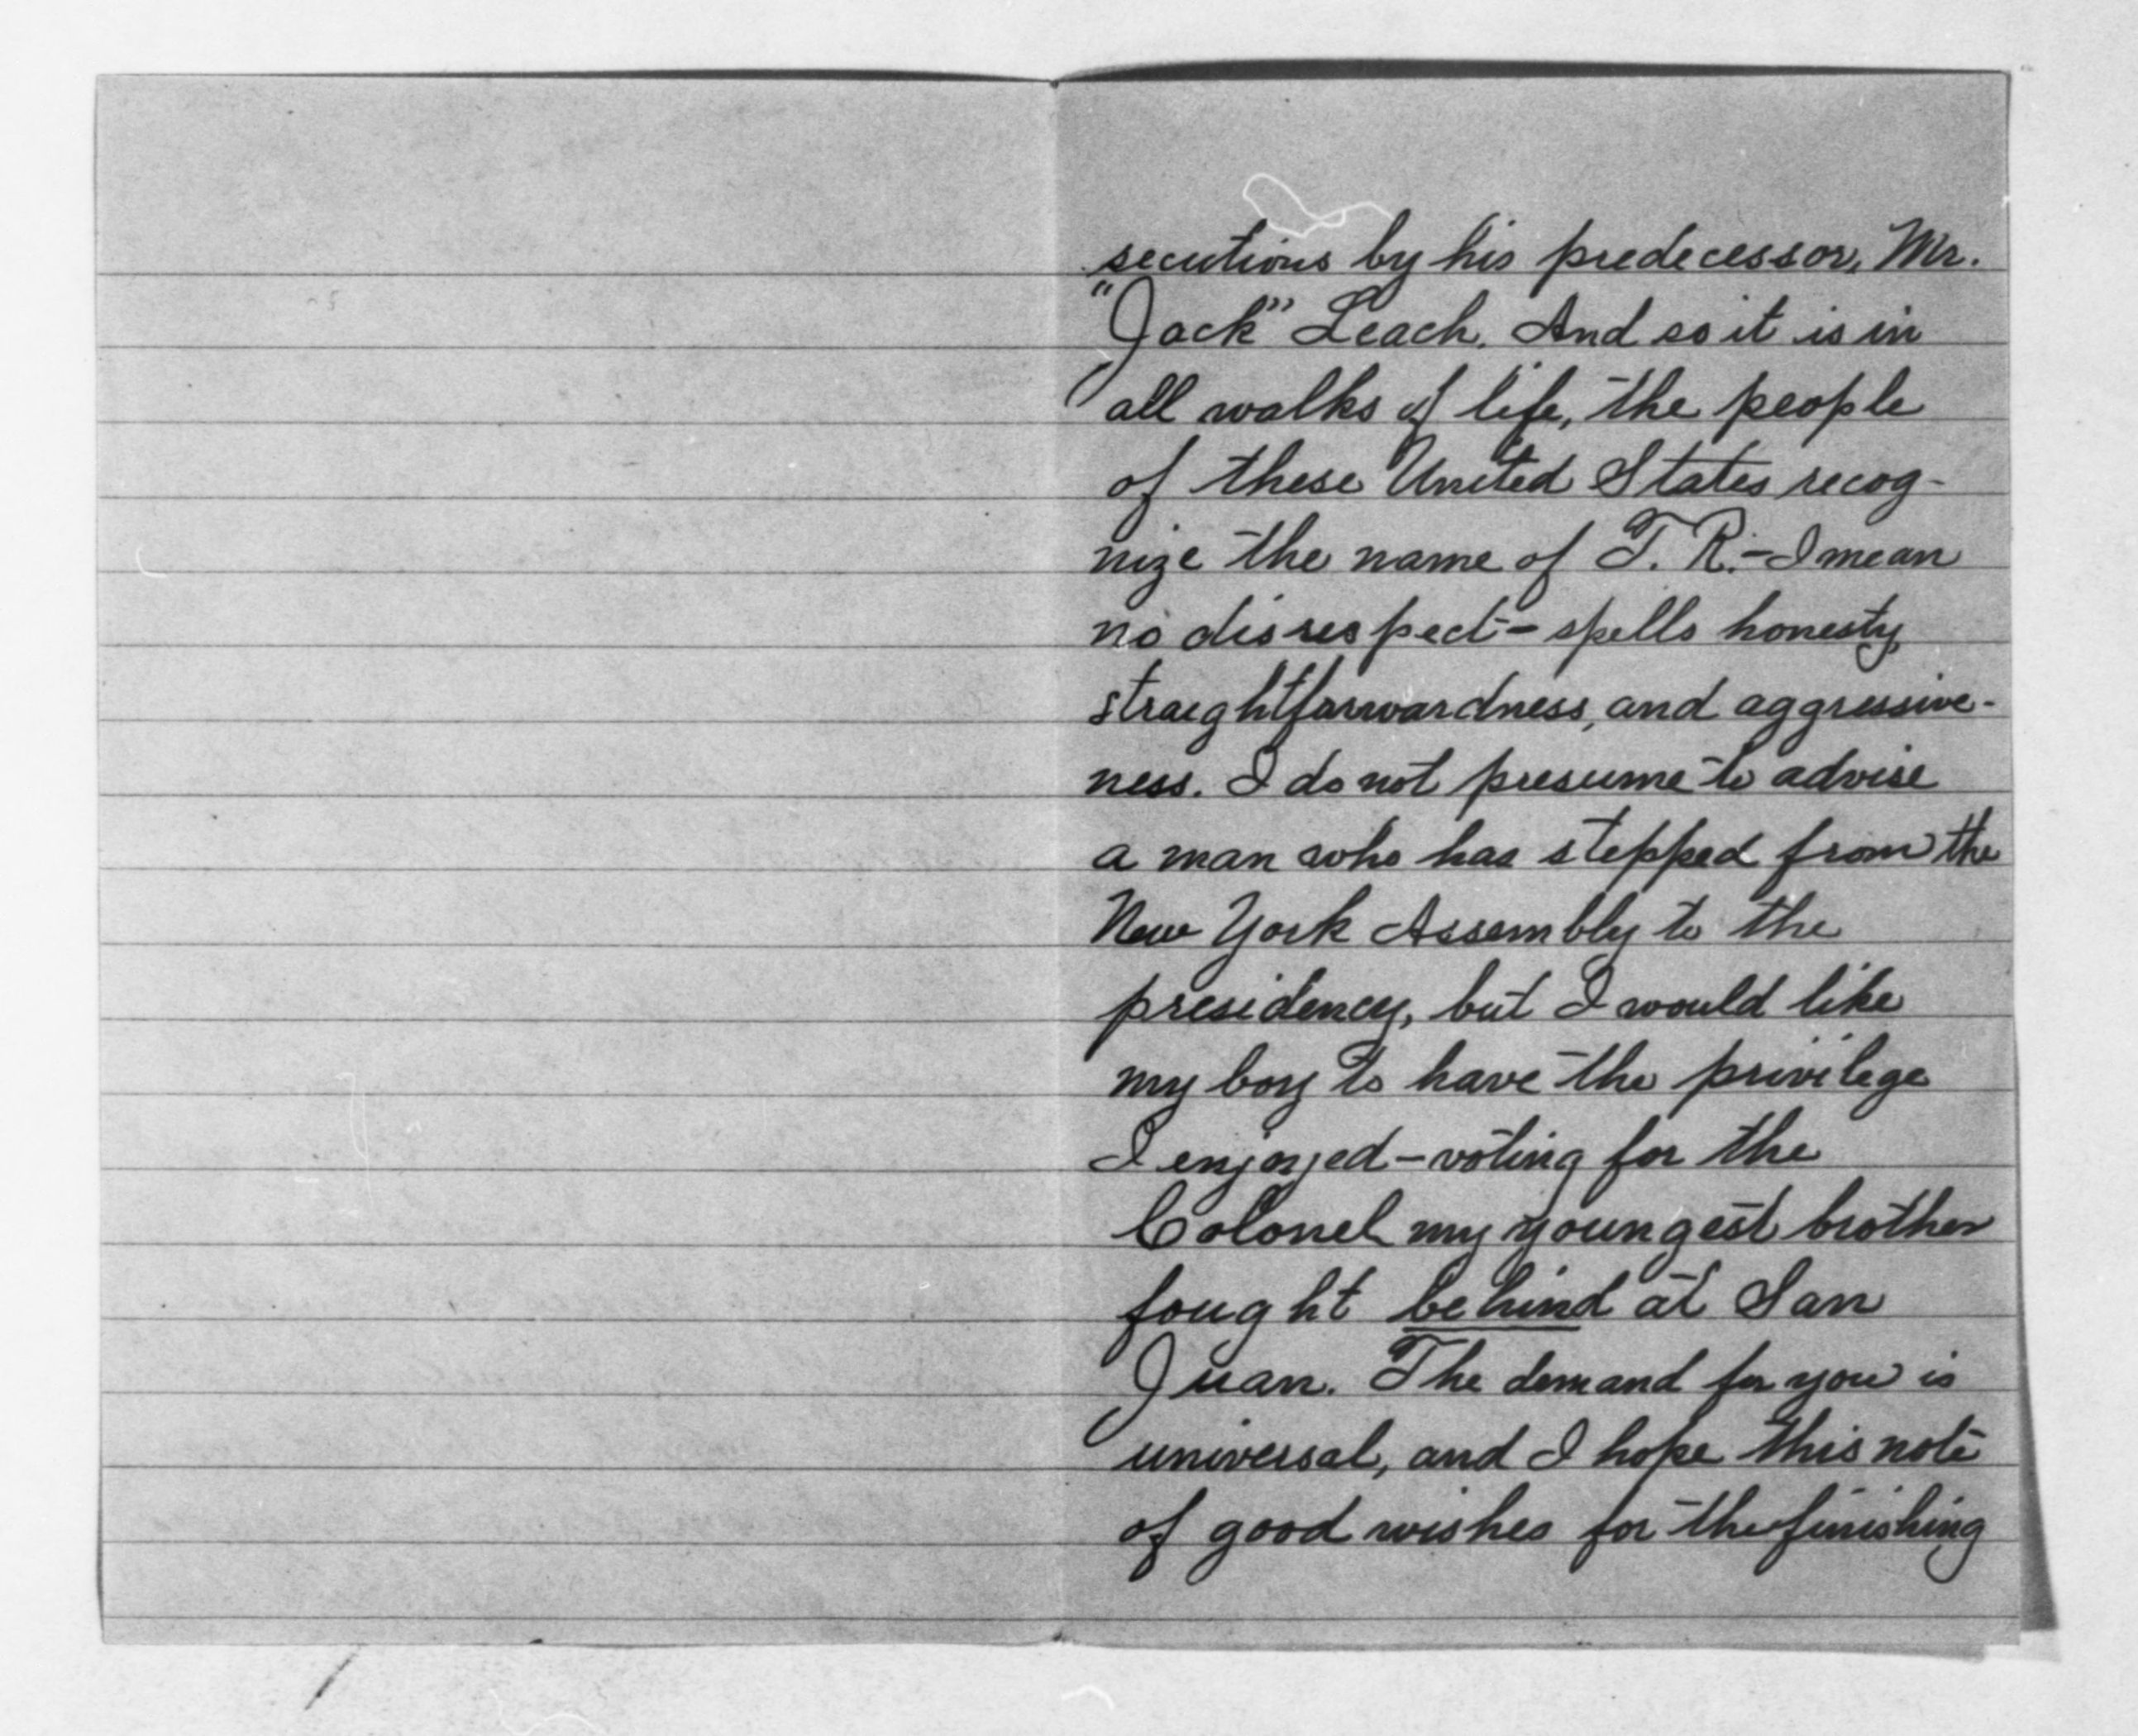 secutions by his predecessor, Mr.
"Jack" Leach. And so it is in
all walks of life, the people
of these United States recog-
nize the name of T. R. - I mean
no disrespect - spells honesty,
straightforwardness, and aggressive-
ness. I do not presume to advise
a man who has stepped from the
New York Assembly to the
presidency, but I would like
my boy to have the privilege
I enjoyed - voting for the
Colonel my youngest brother
fought behind at San
Juan. The demand for you is
universal, and I hope this note
of good wishes for the finishing